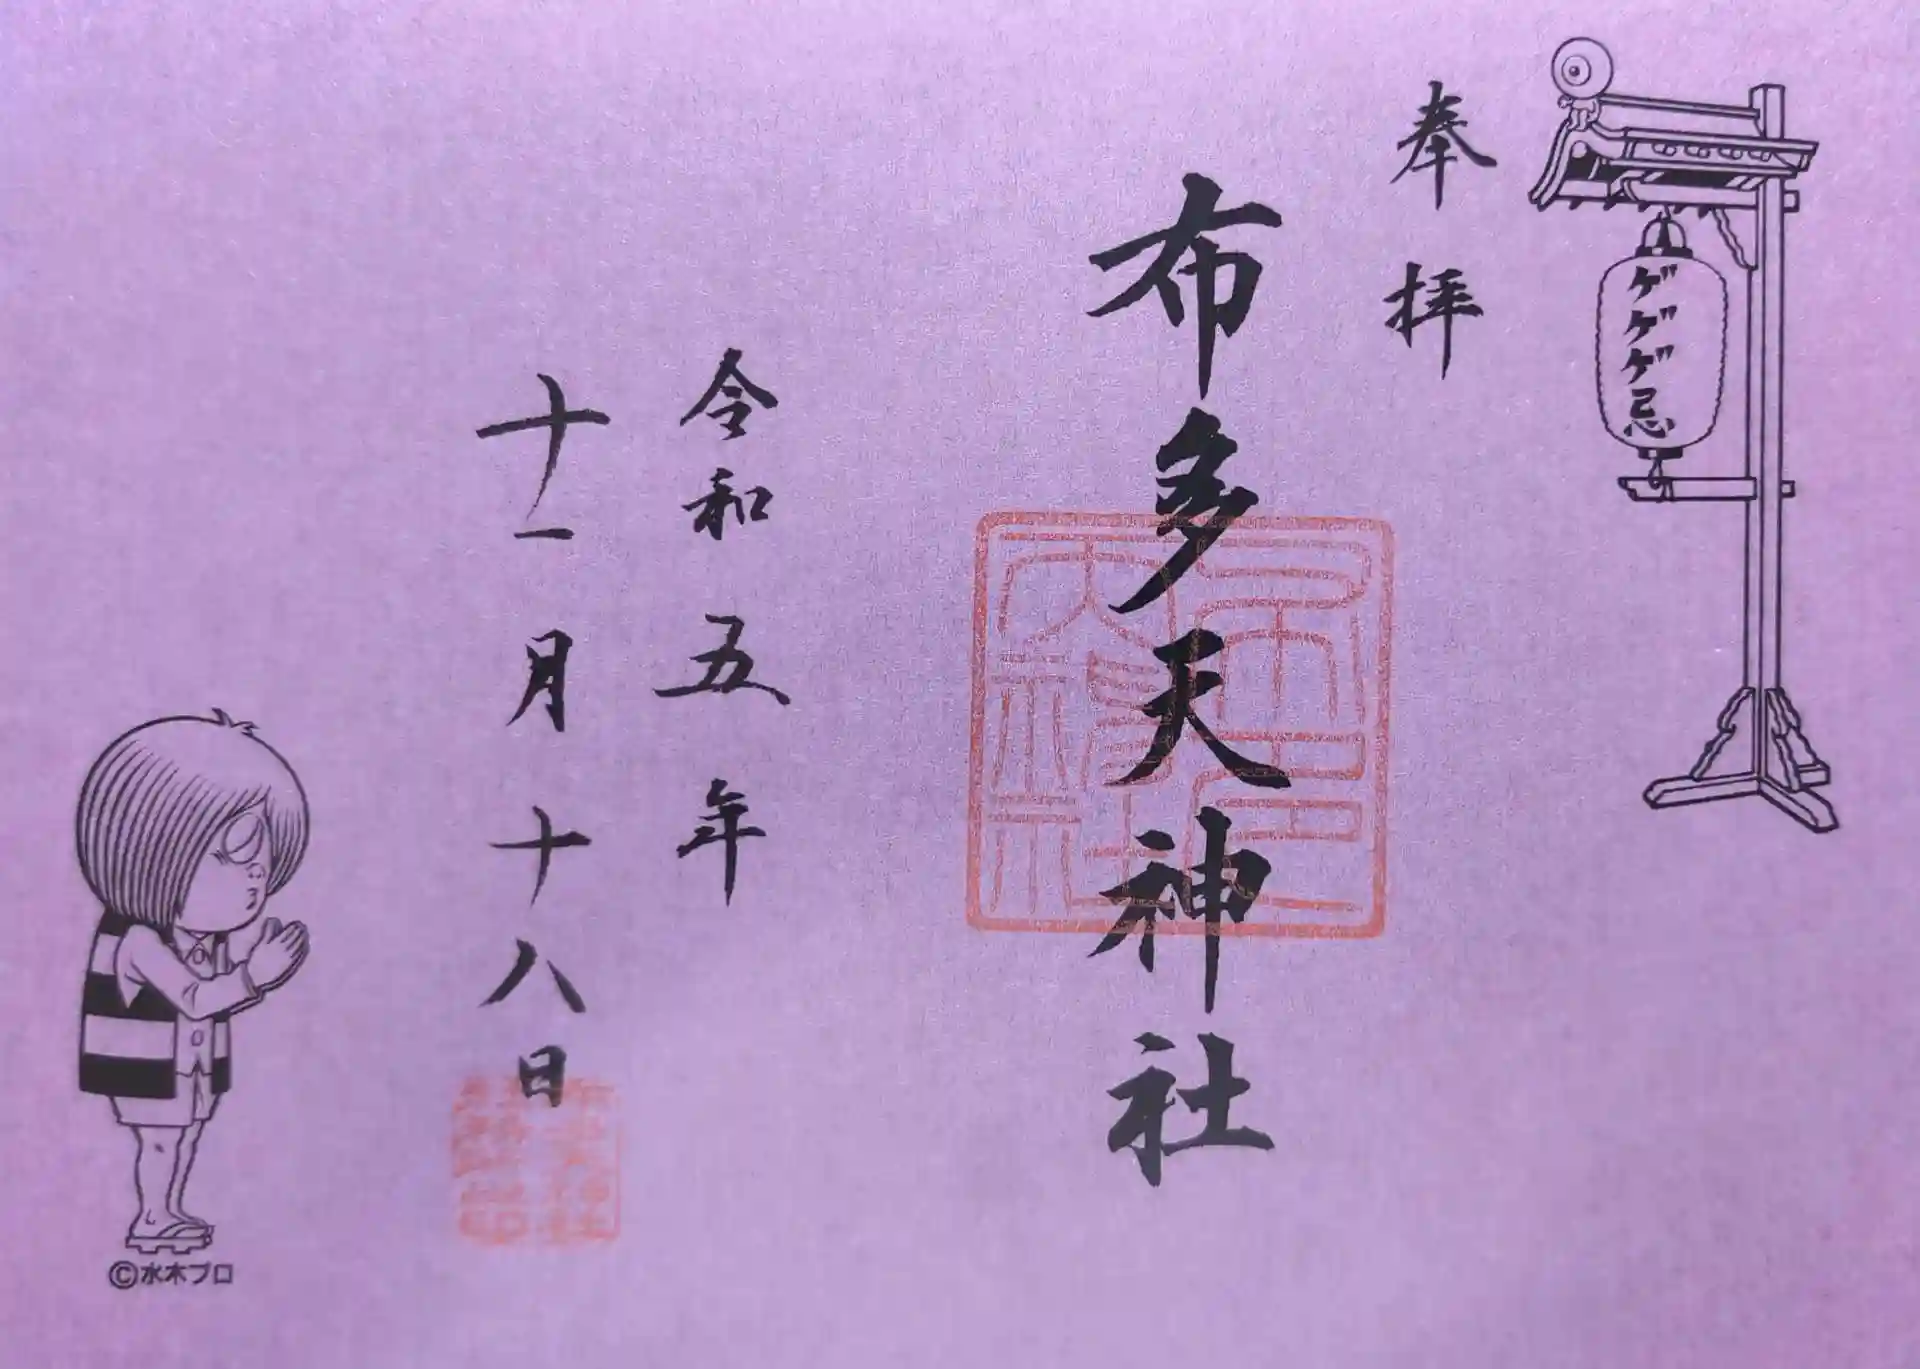 ゲゲゲ忌
奉拝
布多天神社
令和五年
十一月十八日
©水木プロ